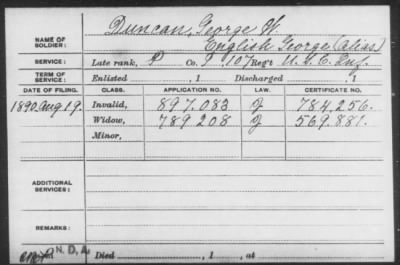 NAME OF SOLDIER: Duncan, George W.
English George (alias)
SERVICE: Late rank, P Co. I 107 Reg't U.S.C. Inf.
TERM OF SERVICE: Enlisted , 1 Discharged , 1
DATE OF FILING. CLASS. APPLICATION NO. LAW. CERTIFICATE NO.
1890, Aug 19. Invalid, 897.083 J 784.256.
Widow, 789208 J 569.881.
Minor,
ADDITIONAL SERVICES:
REMARKS:
N.D.A.
Died , 1 , at